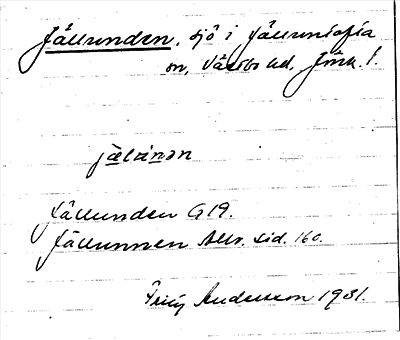 Jällunden, sjö i Jälluntofta
sn, Västbo hd, Jönk. l.
jälunən
Jällunden G19.
Jällunnen Allr. sid. 160.
Andersson 1931.